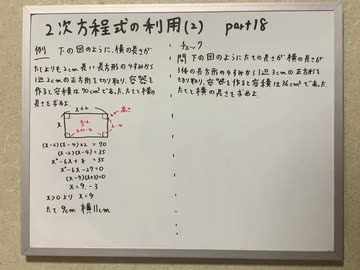 2次方程式の利用(2) part18
例 下の図のように、横の長さが
たてよりも2cm長い長方形の4すみから
1辺2cmの正方形を切り取り、容器を
作ると容積は70cm³であった。たてと横の
長さを求めよ。
x+2
高さ
x
x-2
x+2-4
x-4
(x-2)(x-4)×2 = 70
(x-2)(x-4) = 35
x²-6x+8 = 35
x²-6x-27 = 0
(x-9)(x+3) = 0
x = 9, -3
x>0より x=9
たて 9cm 横 11cm
チェック
問 下の図のようにたての長さが、横の長さが
3倍の長方形の4すみから1辺3cmの正方形を
切り取り、容器を作ると容積は36cm³であった。
たてと横の長さを求めよ。